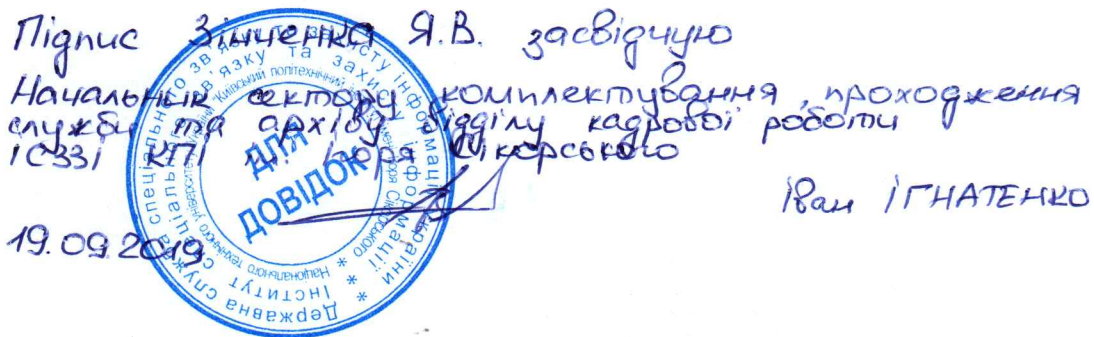 Підпис Зінченка Я.В. засвідчую
Начальник сектору комплектування, проходження
служби та архіву відділу кадрової роботи
ІСЗЗІ КПІ ім. Ігоря Сікорського
Іван ІГНАТЕНКО
19.09.2019
Державна служба спеціального зв'язку та захисту інформації України *
Інститут спеціального зв'язку та захисту інформації *
Національного технічного університету України "Київський політехнічний інститут імені Ігоря Сікорського" *
ДЛЯ
ДОВІДОК